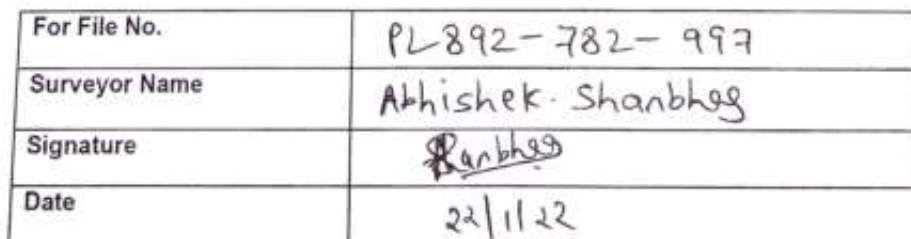 For File No. PL892-782-997
Surveyor Name Abhishek. Shanbhag
Signature Shanbhag
Date 22/1/22